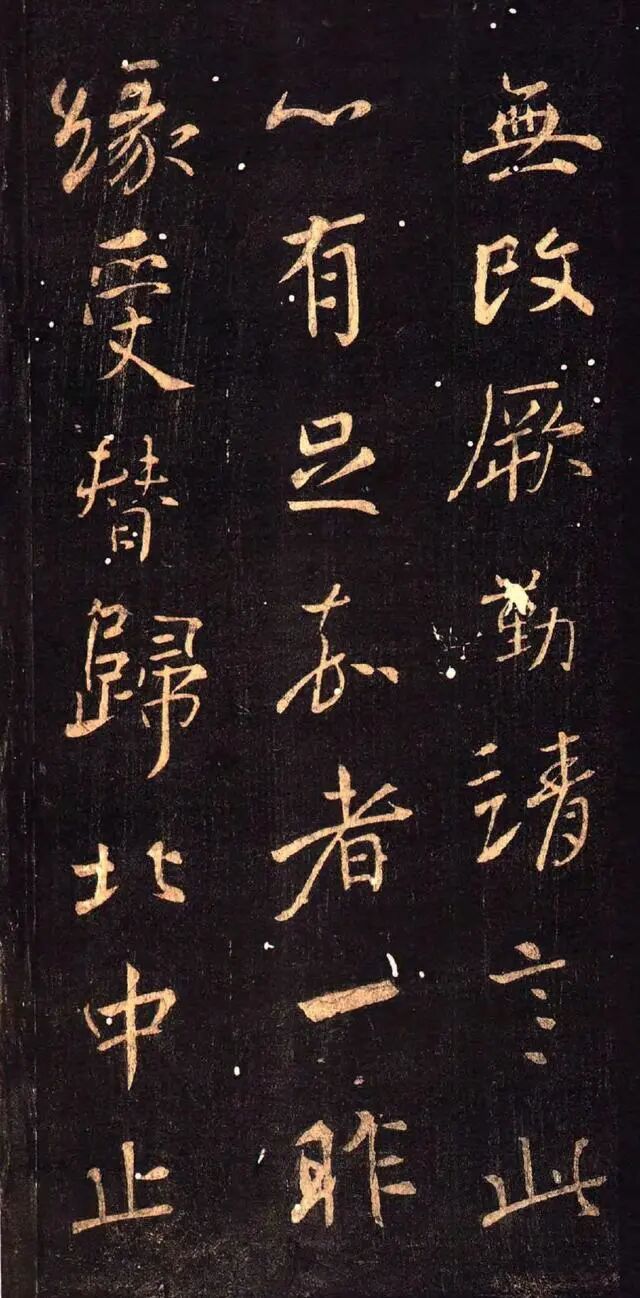 無改厥勤靖言此
心有足嘉者一昨
緣受替歸北中止